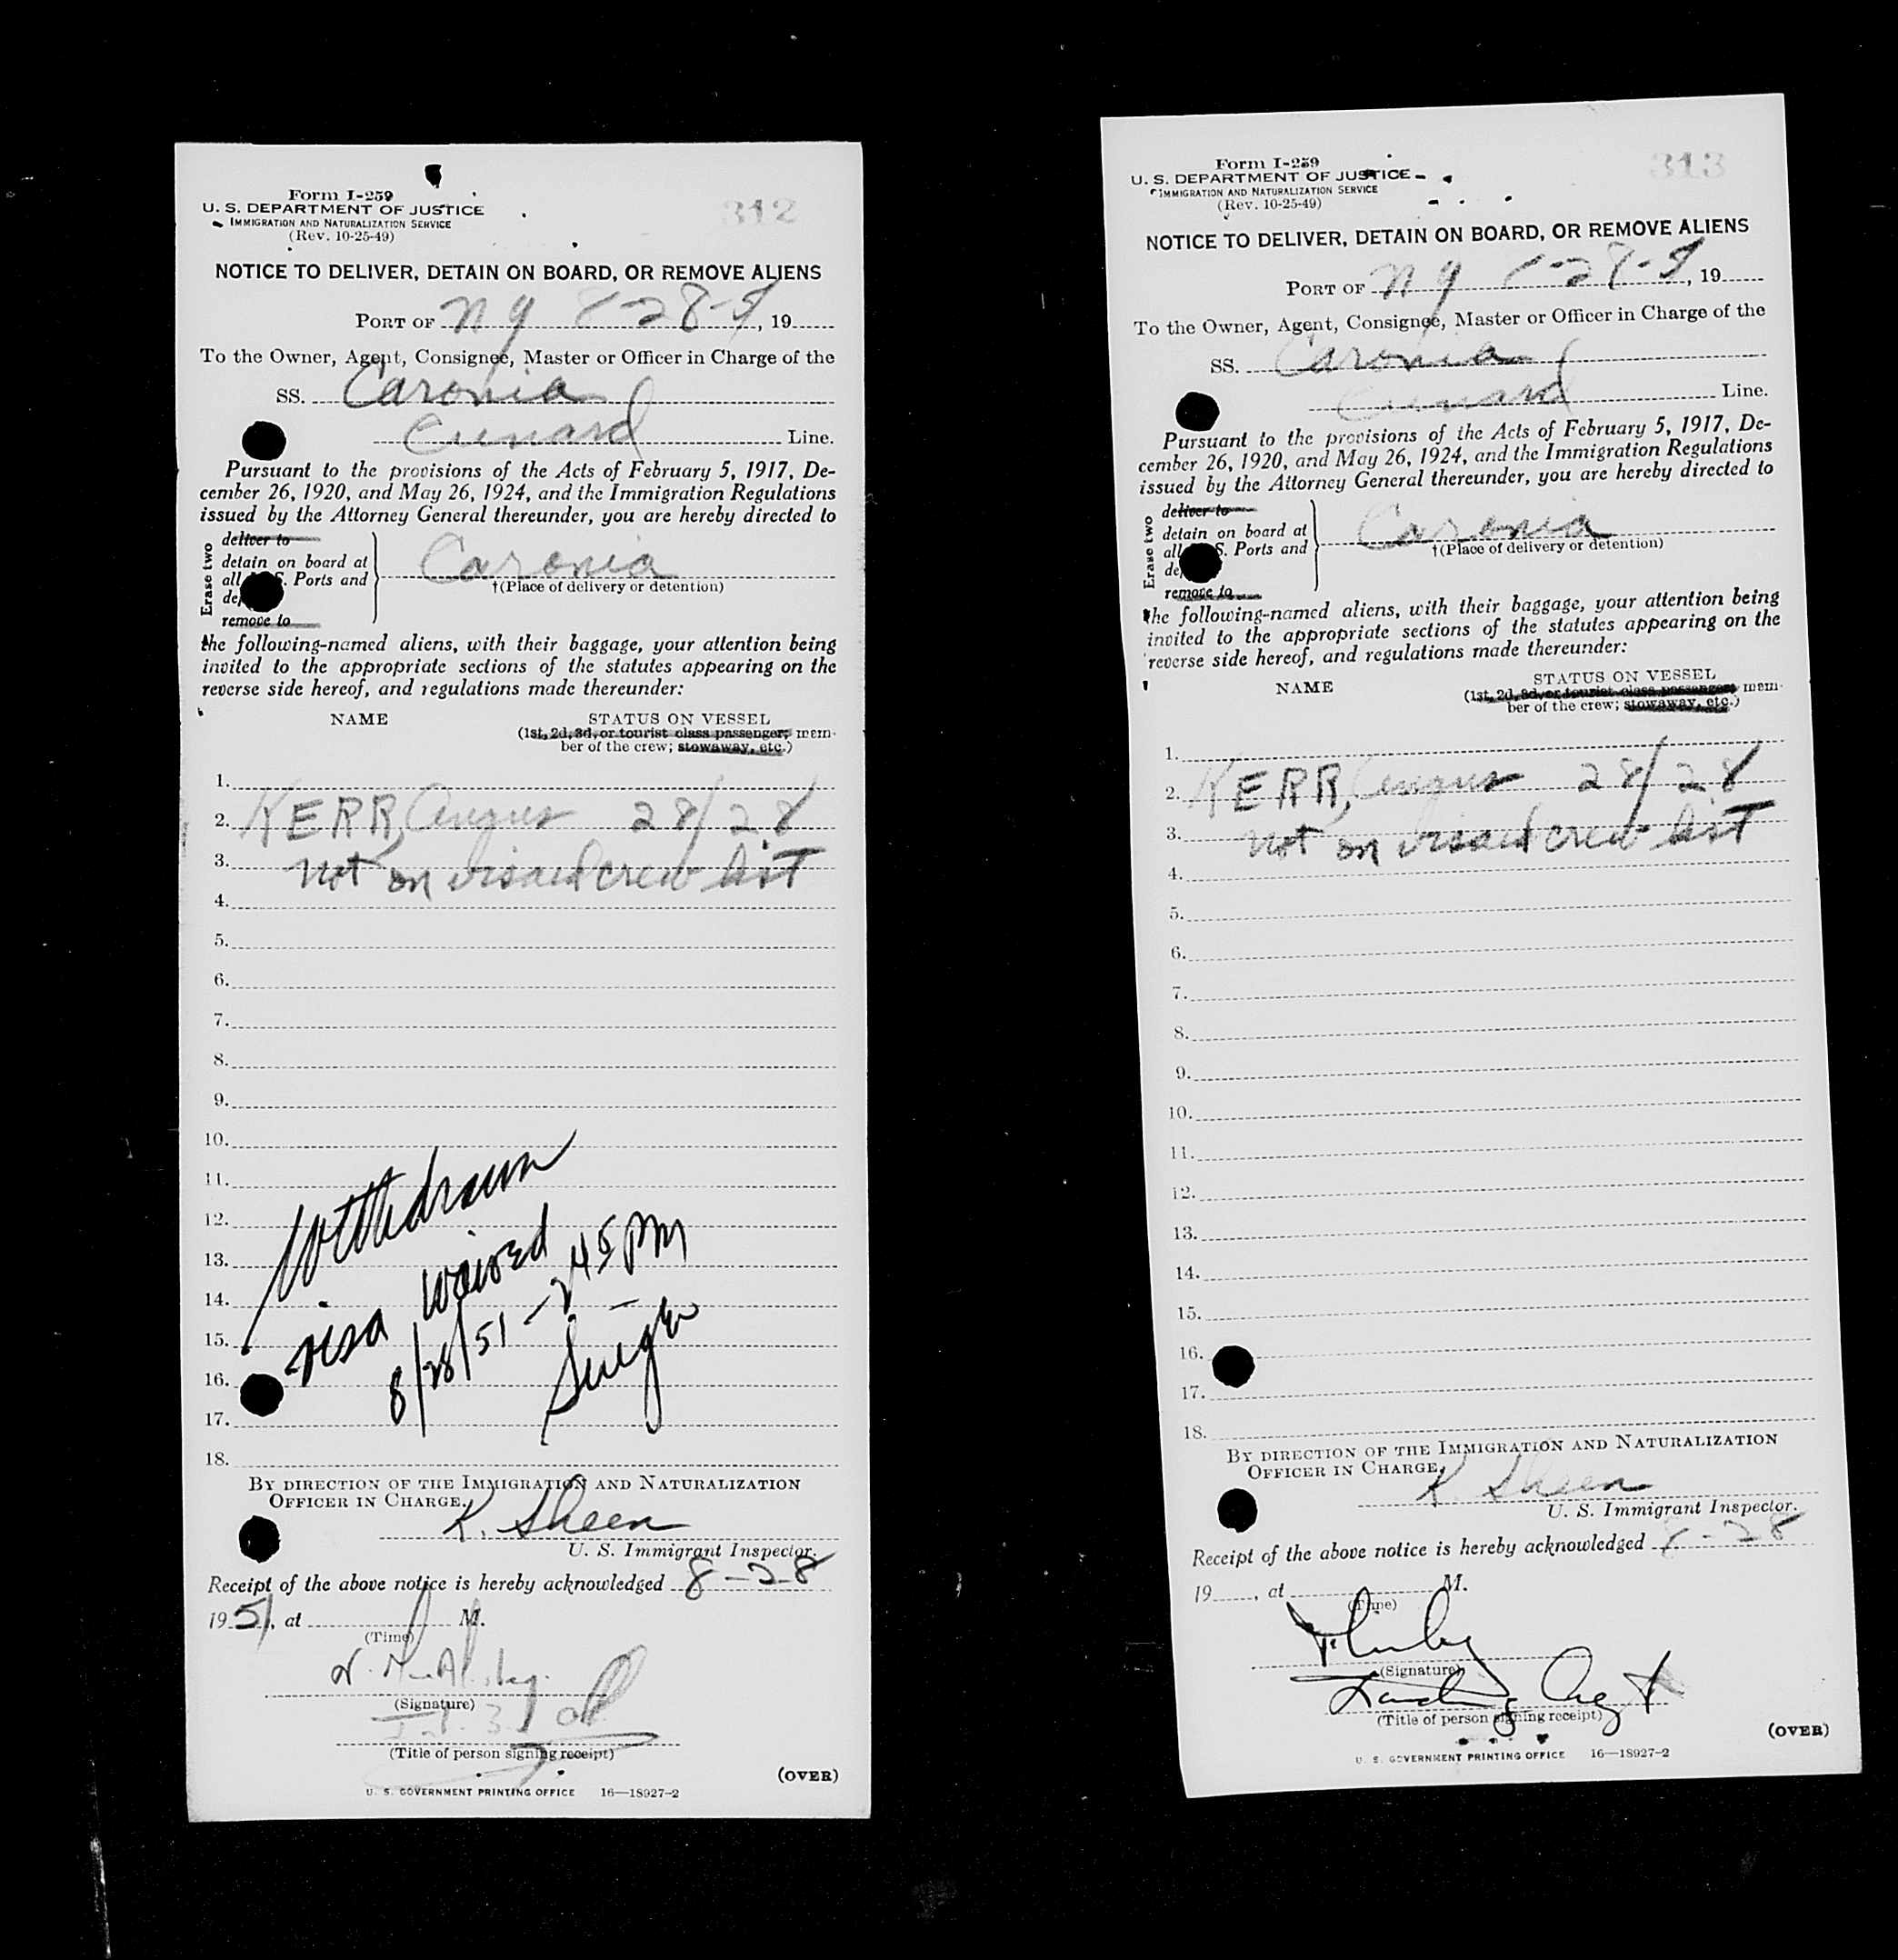 312
Form I-259
U. S. DEPARTMENT OF JUSTICE
IMMIGRATION AND NATURALIZATION SERVICE
(Rev. 10-25-49)
NOTICE TO DELIVER, DETAIN ON BOARD, OR REMOVE ALIENS
PORT OF NY 8-28-51, 19
To the Owner, Agent, Consignee, Master or Officer in Charge of the
SS. Caronia
Cunard Line.
Pursuant to the provisions of the Acts of February 5, 1917, De-
cember 26, 1920, and May 26, 1924, and the Immigration Regulations
issued by the Attorney General thereunder, you are hereby directed to
Erase two
deliver to
detain on board at
all S. Ports and
de
remove to
Caronia
†(Place of delivery or detention)
the following-named aliens, with their baggage, your attention being
invited to the appropriate sections of the statutes appearing on the
reverse side hereof, and regulations made thereunder:
NAME STATUS ON VESSEL
(1st, 2d, 3d, or tourist class passenger; mem-
ber of the crew; stowaway, etc.)
1.
2. KERR, Angus 28/28
3. not on visaed crew list
4.
5.
6.
7.
8.
9.
10.
11. Withdrawn
12.
13. visa waived
14. 8/28/51 - 245 PM
15.
16.
17.
18.
BY DIRECTION OF THE IMMIGRATION AND NATURALIZATION
OFFICER IN CHARGE.
K. Sheen
U. S. Immigrant Inspector.
Receipt of the above notice is hereby acknowledged 8-28
1951, at M.
(Time)
(Signature)
(Title of person signing receipt)
(OVER)
U. S. GOVERNMENT PRINTING OFFICE 16—18927-2
313
Form I-259
U. S. DEPARTMENT OF JUSTICE
IMMIGRATION AND NATURALIZATION SERVICE
(Rev. 10-25-49)
NOTICE TO DELIVER, DETAIN ON BOARD, OR REMOVE ALIENS
PORT OF NY 8-28-51, 19
To the Owner, Agent, Consignee, Master or Officer in Charge of the
SS. Caronia
Cunard Line.
Pursuant to the provisions of the Acts of February 5, 1917, De-
cember 26, 1920, and May 26, 1924, and the Immigration Regulations
issued by the Attorney General thereunder, you are hereby directed to
Erase two
deliver to
detain on board at
all S. Ports and
de
remove to
Caronia
†(Place of delivery or detention)
the following-named aliens, with their baggage, your attention being
invited to the appropriate sections of the statutes appearing on the
reverse side hereof, and regulations made thereunder:
NAME STATUS ON VESSEL
(1st, 2d, 3d, or tourist class passenger; mem-
ber of the crew; stowaway, etc.)
1.
2. KERR, Angus 28/28
3. not on visaed crew list
4.
5.
6.
7.
8.
9.
10.
11.
12.
13.
14.
15.
16.
17.
18.
BY DIRECTION OF THE IMMIGRATION AND NATURALIZATION
OFFICER IN CHARGE.
K. Sheen
U. S. Immigrant Inspector.
Receipt of the above notice is hereby acknowledged 8-28
19, at M.
(Time)
(Signature)
Landing Agt
(Title of person signing receipt)
(OVER)
U. S. GOVERNMENT PRINTING OFFICE 16—18927-2